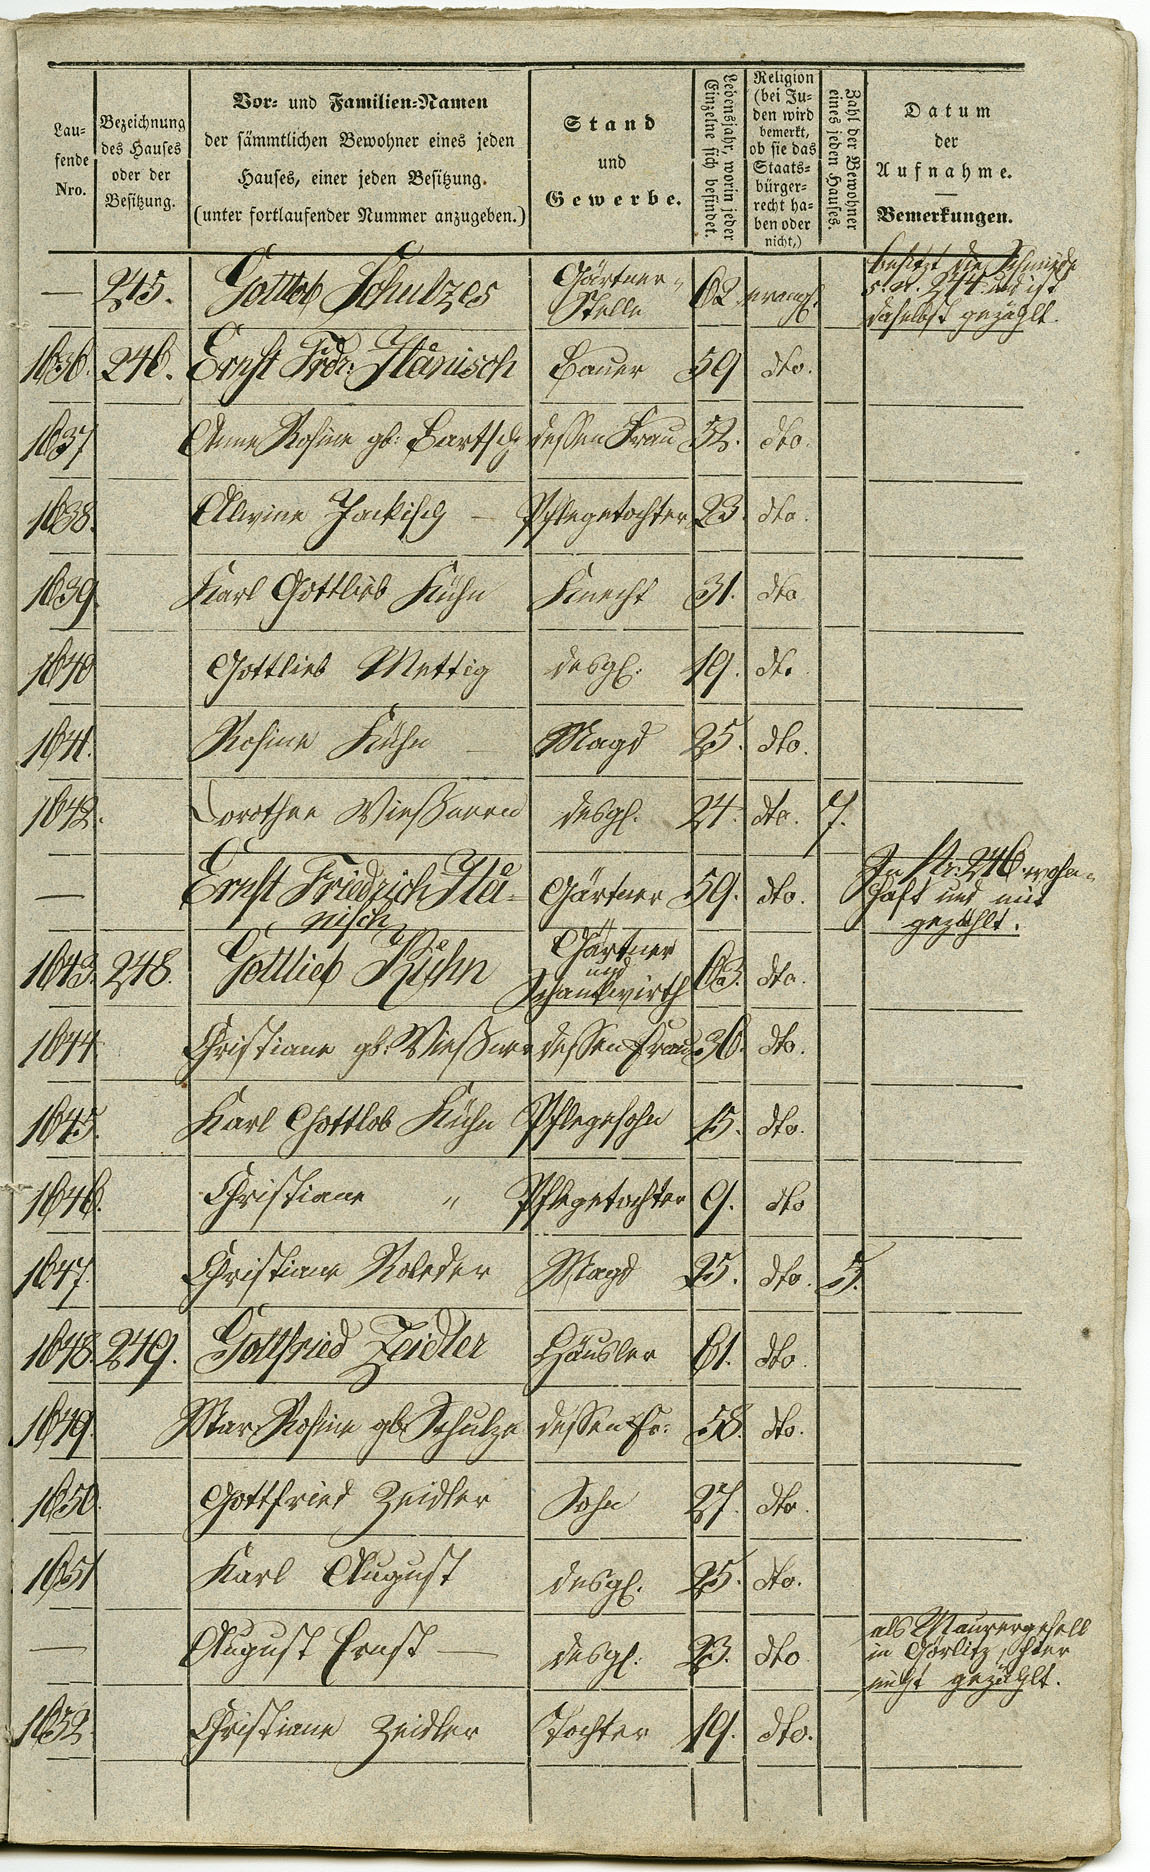 Lau-
fende
Nro.
Bezeichnung
des Hauses
oder der
Besitzung.
Vor- und Familien-Namen
der sämmtlichen Bewohner eines jeden
Hauses, einer jeden Besitzung.
(unter fortlaufender Nummer anzugeben.)
Stand
und
Gewerbe.
Lebensjahr, worin jeder
Einzelne sich befindet.
Religion
(bei Ju-
den wird
bemerkt,
ob sie das
Staats-
bürger-
recht ha-
ben oder
nicht,)
Zahl der Bewohner
eines jeden Hauses.
Datum
der
Aufnahme.
Bemerkungen.
— 245. Gottlob Schulzes Gärtner-
Stelle 62 evangl.
besitzt die Schmiede
s. N. 244 und ist
daselbst gezählt.
1636. 246. Ernst Frdr. Hänisch Bauer 59 dto.
1637 Anne Rosine gb: Bartsch dessen Frau 52. dto.
1638. Alwine Jackisch — Pflegetochter 23. dto.
1639. Karl Gottlieb Kühn Knecht 31. dto
1640 Gottlieb Mettig desgl. 19. dto
1641. Rosine Kühn — Magd 25. dto.
1642. Dorothee Wießneren desgl. 24. dto. 7.
— Ernst Friedrich Hä-
nisch Gärtner 59. dto.
In Nr. 246 wohn-
haft und mit
gezählt.
1643. 248. Gottlieb Kühn Gärtner
und
Schankwirth 63. dto.
1644 Christiane gb: Wießner dessen Frau 36. dto.
1645. Karl Gottlob Kühn Pflegesohn 15. dto.
1646. Christiane " Pflegetochter 9. dto
1647. Christiane Roleder Magd 25. dto. 5.
1648. 249. Gottfried Zeidler Häusler 61. dto.
1649. Mar. Rosine gb. Schulze dessen Fr: 58. dto.
1650. Gottfried Zeidler Sohn 27. dto.
1651 Karl August desgl. 25. dto.
— August Ernst — desgl: 23. dto
als Maurergesell
in Görlitz,
nicht gezählt.
1652. Christiane Zeidler Tochter 19. dto.